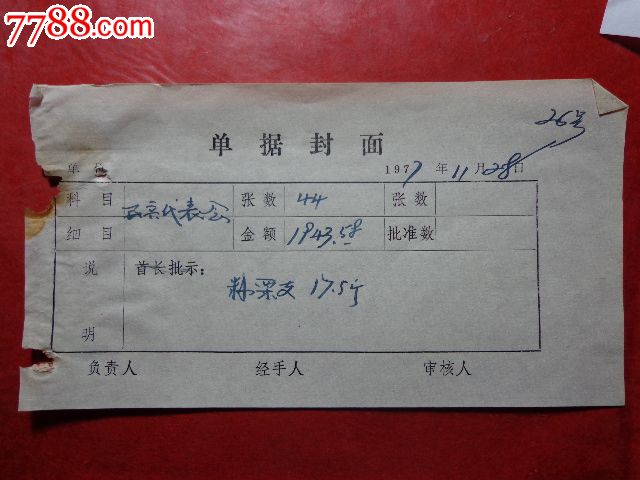 7788.com
26号
单据封面
单位 1977年11月28日
科目 代表会 张数 44 张数
细目 金额 1943.58 批准数
说明 首长批示:
粮支 17.5斤
负责人 经手人 审核人